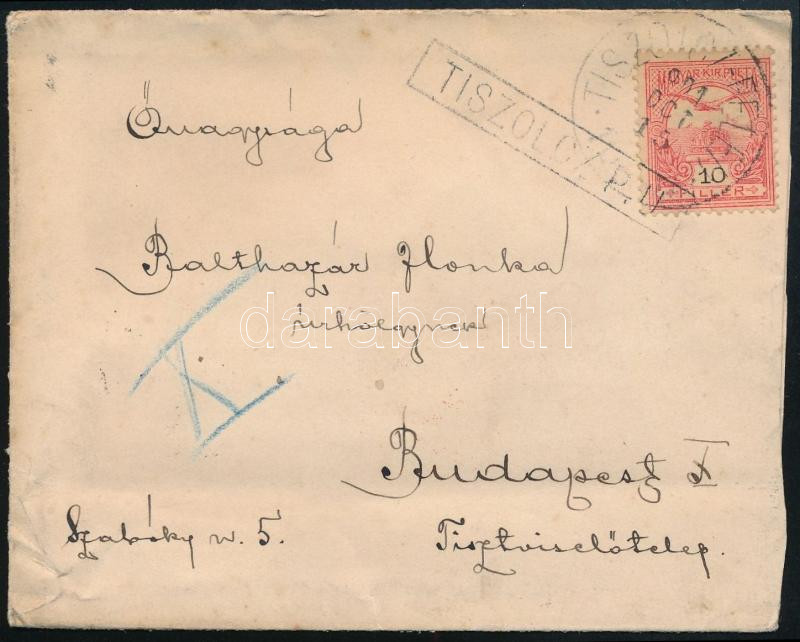 TISZOLCZ P.U.
TISZOLCZ
901
OCT
MAGYAR KIR. POSTA
10
FILLER
Őnagysága
Balthazár Ilonka
úrhölgynek
darabanth
X
Budapest X
Szabóky u. 5.
Tisztviselőtelep.